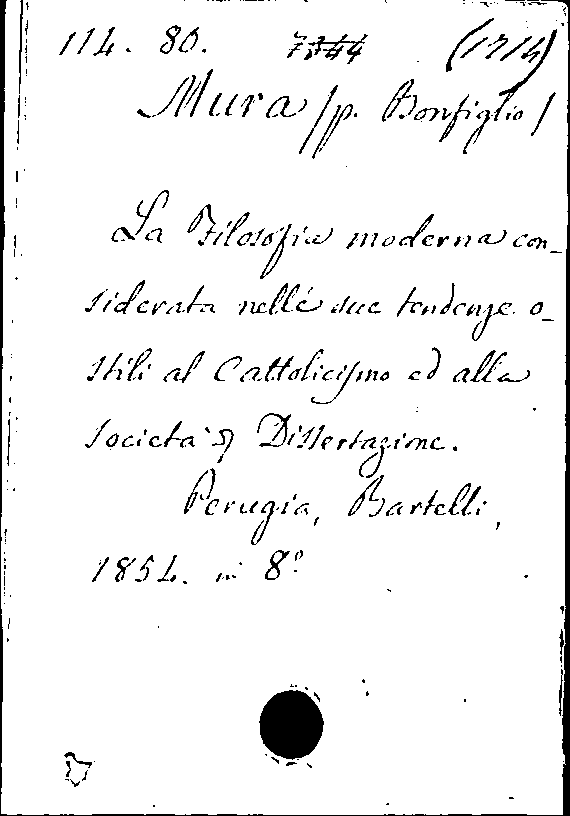 114. 80. 7344 (1714)
Mura /p. Bonfiglio/
La Filosofia moderna con-
siderata nelle sue tendenze o-
stili al Cattolicismo ed alla
società Dissertazione.
Perugia, Bartelli,
1854. in 8º